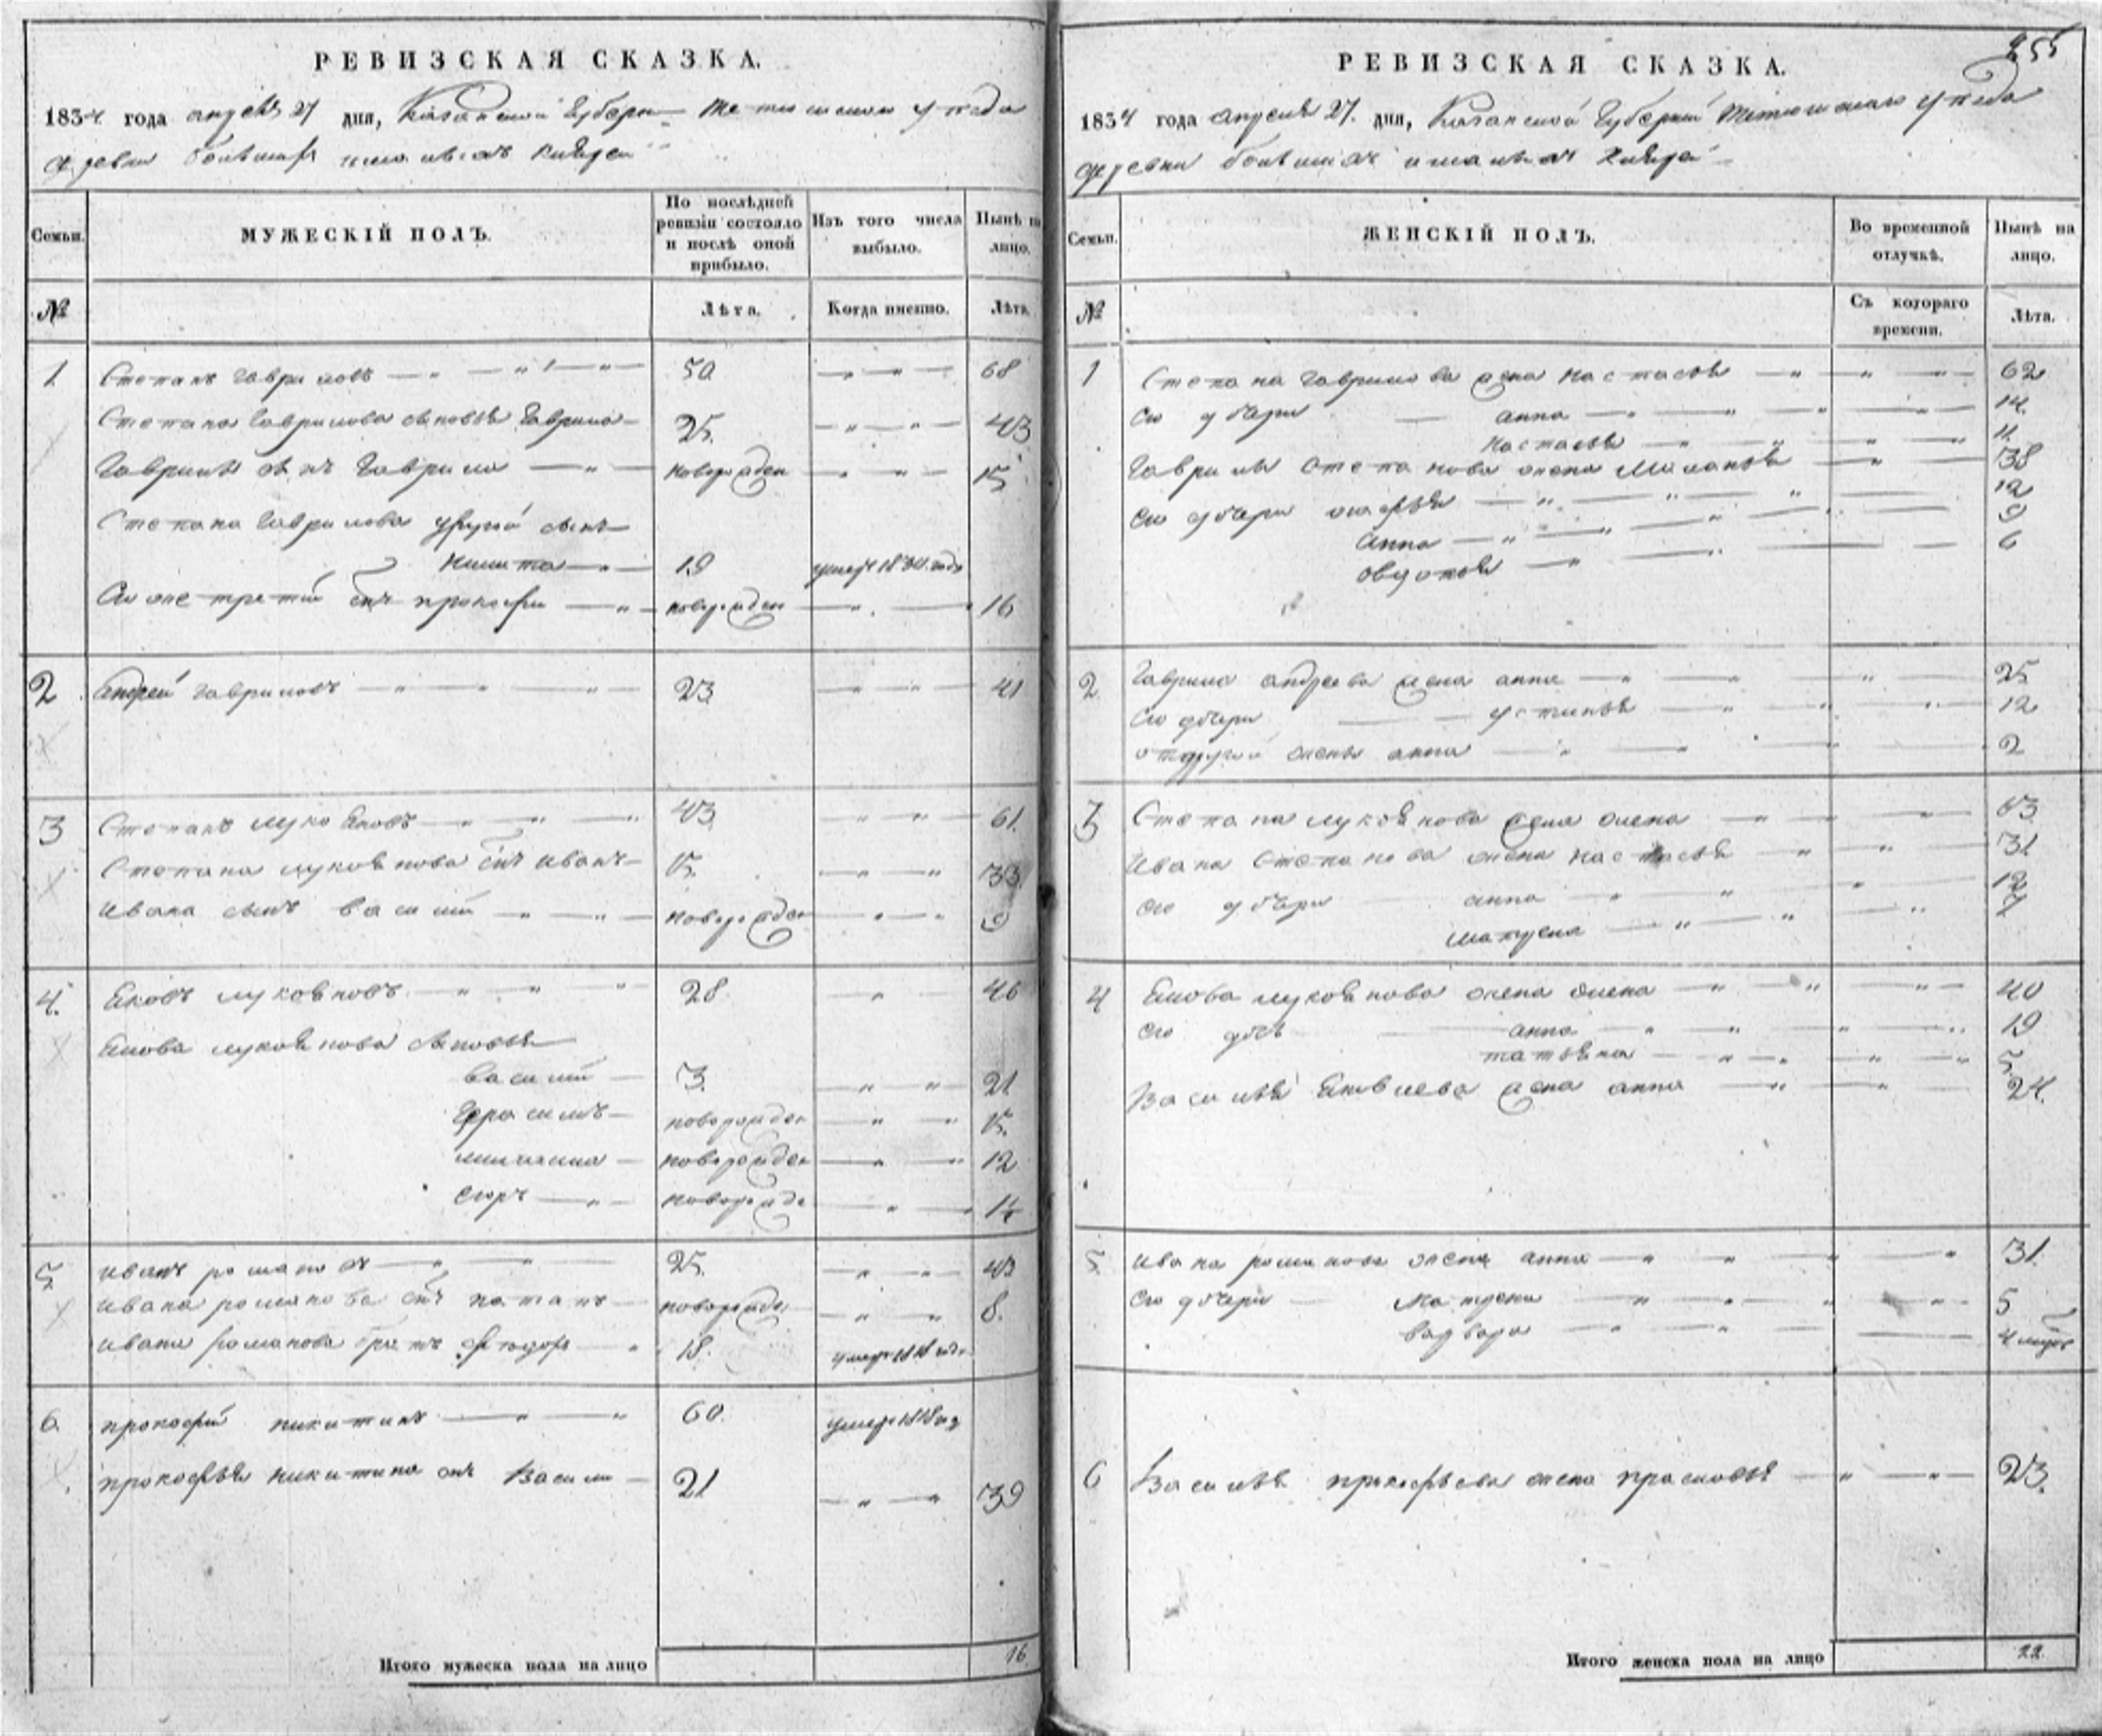 РЕВИЗСКАЯ СКАЗКА.
1834 года апреля 27 дня, Казанской Губернии уезда
деревни
Семьи.
МУЖЕСКІЙ ПОЛЪ.
По послѣдней ревизіи состояло и послѣ оной прибыло.
Изъ того числа выбыло.
Нынѣ на лицо.
№
Лѣта.
Когда именно.
Лѣта.
1. Степанъ гавриловъ 50 68
Степана гаврилова сыновья гаврило 25. 43
Гаврилы сынъ гаврило новорожден 15
Степана гаврилова другой сынъ
никита 19 умер 1831 года
Его же третий сынъ прокофий новорожден 16
2 андрей гавриловъ 23 41
3 Степанъ лукояновъ 43 61.
Степана лукоянова сынъ иванъ 15. 33.
ивана сынъ василий новорожден 9
4. яковъ лукояновъ 28 46
якова лукоянова сыновья
василий 3. 21
герасимъ новорожден 15.
новорожден 12
егоръ новорожде 14
5 иванъ романовъ 25. 43
ивана романова сынъ потапъ новорожде 8.
ивана романова братъ федоръ 18. умер 1818 года
6. прокофий никитинъ 60. умер 1818 год
прокофья никитина сынъ василий 21 39
Итого мужеска пола на лицо 16
255
РЕВИЗСКАЯ СКАЗКА.
1834 года апреля 27. дня, Казанской Губернии Тетюшскаго уезда
деревни
Семьи.
ЖЕНСКІЙ ПОЛЪ.
Во временной отлучкѣ.
Нынѣ на лицо.
№
Съ котораго времени.
Лѣта.
1 Степана гаврилова жена настасья 62
Его дочери анна 14.
настасья 11.
гаврилы степанова жена маланья 38
Его дочери 12
анна 9
овдотья 6
2 гаврила андреева жена анна 25
Его дочери устинья 12
от другой жены анна 2
3 Степана лукоянова жена олена 63
ивана степанова жена настасья 31
его дочери анна 12
матрена 7
4 якова лукоянова жена олена 40
Его дочь анна 19
татьяна 5
василья яковлева жена анна 24.
5 ивана романова жена анна 31.
Его дочери матрена 5
варвара 4
6 василья прокофьева жена прасковья 23.
Итого женска пола на лицо 22